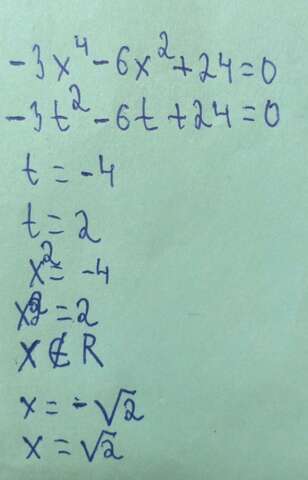 -3x⁴-6x²+24=0
-3t²-6t+24=0
t=-4
t=2
x²=-4
x²=2
x∉R
x=-√2
x=√2